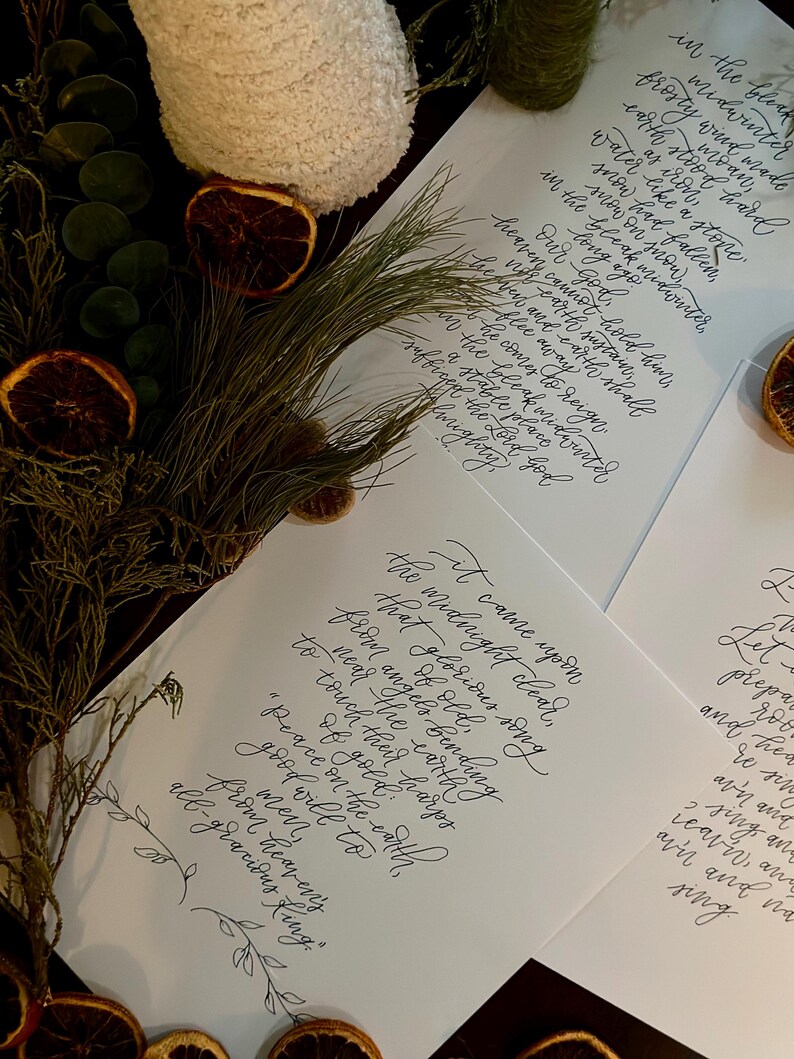 in the bleak
midwinter
frosty wind made
moan,
earth stood hard
as iron,
water like a stone,
snow had fallen,
snow on snow
in the bleak midwinter,
long ago.
our God,
heaven cannot hold him,
nor earth sustain,
heaven and earth shall
flee away
he comes to reign.
in the bleak midwinter
a stable place
sufficed the Lord God
almighty
it came upon
the midnight clear,
that glorious song
of old,
from angels bending
near the earth
to touch their harps
of gold:
"peace on the earth,
good will to
men,
from heavens
all-gracious King."
Let
room
and
sing
and
sing, and
heav'n, and
and
sing.